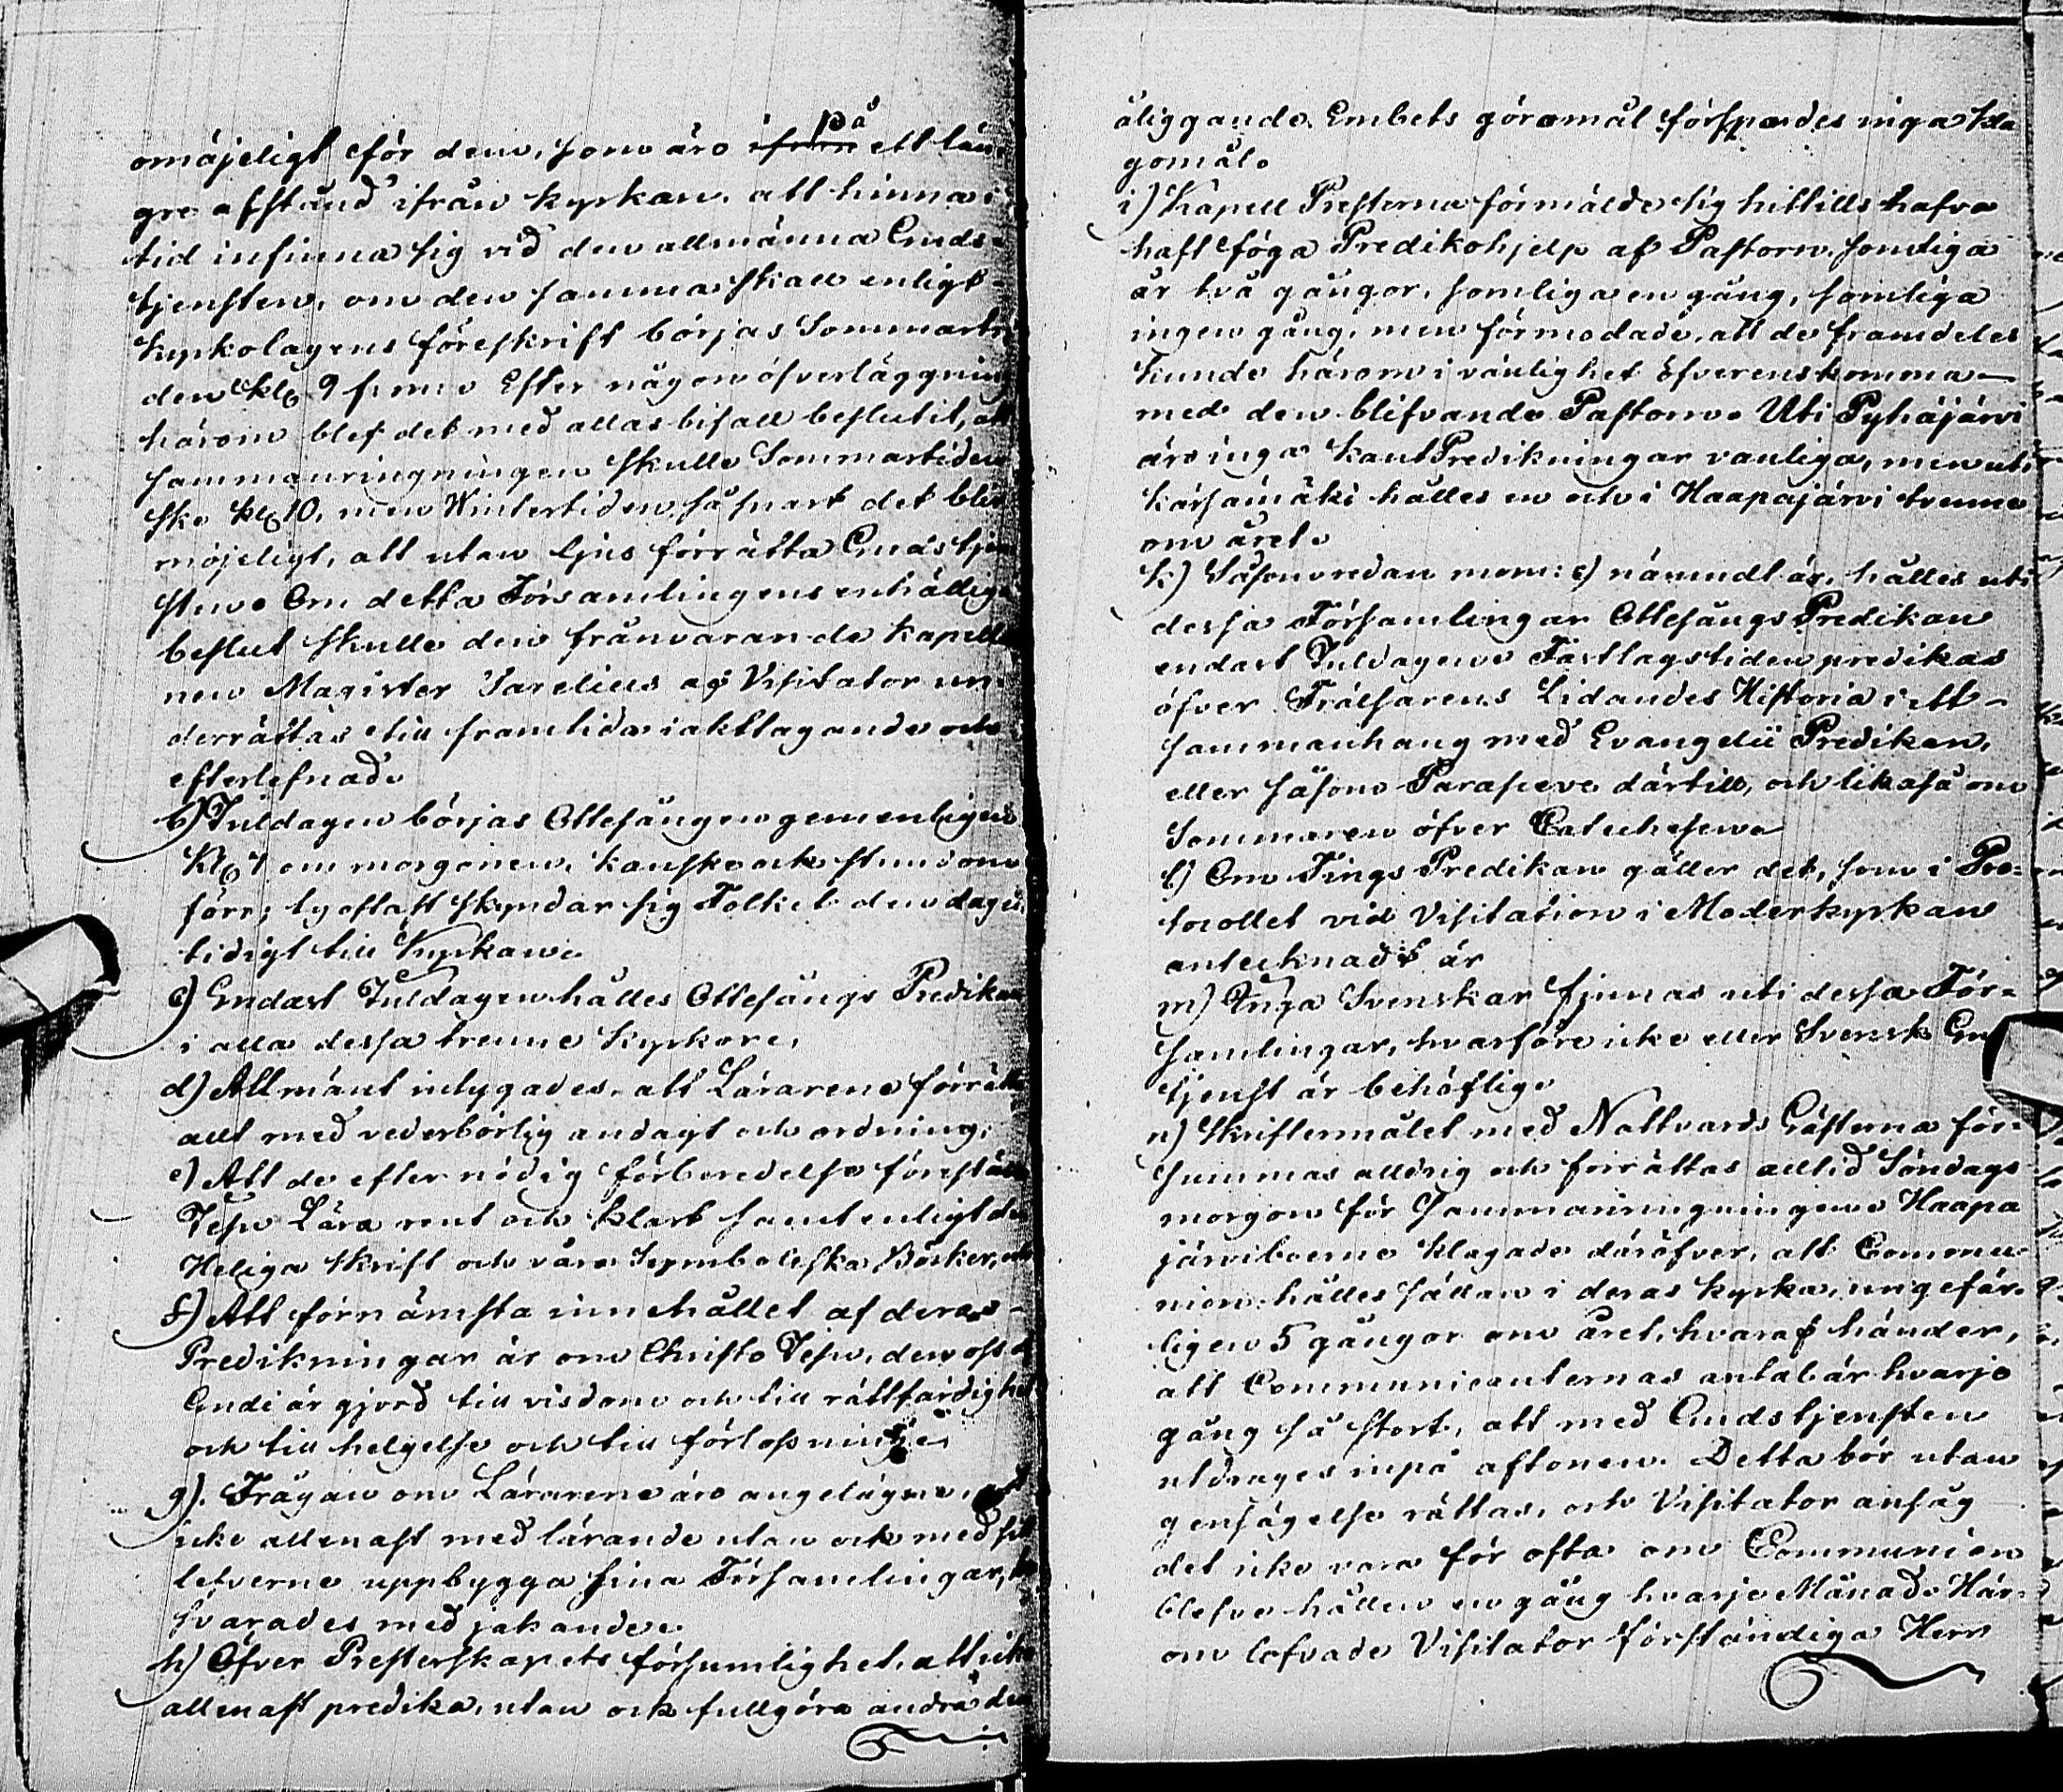 omöjeligt för dem, som äro ifrån på ett län-
gre afstånd ifrån kyrkan, att hinna i
tid infinna sig vid den allmänna Guds-
tjensten, om den samma skall enligt
kyrkolagens föreskrift börjas Sommarti-
den Kl. 9 f. m. Efter någon öfverläggning
härom blef det med allas bifall beslutit, att
sammanringningen skulle Sommartiden
ske kl. 10, men Wintertiden så snart det blir
möjeligt, att utan ljus förrätta Gudstjen-
sten. Om detta Församlingens enhälliga
beslut skulle den frånvarande kapella-
nen Magister Sarelius af Visitator un-
derrättas till framtida iakttagande och
efterlefnad.
b) Juldagen börjas Ottesången gemenligen
Kl. 4 om morgonen, kanske ock stundom
förr; ty oftast skyndar sig Folket den dagen
tidigt till Kyrkan.
c) Endast Juldagen hålles Ottesångs Predikan
i alla dessa trenne kyrkor.
d) Allmänt intygades, att Lärarene förrätta
allt med vederbörlig andagt och ordning;
e) Att de efter nödig förberedelse föreställa
Jesu Lära rent och klart samt enligt den
Heliga Skrift och våra Symboliska Böcker, och
f) Att förnämsta innehållet af deras
Predikningar är om Christo Jesu, den oss af
Gudi är gjord till visdom och till rättfärdighet
och till helgelse och till förlossning.
g). Frågan om Lärarene äro angelägne, att
icke allenast med lärande utan ock med sitt
lefverne uppbygga sina Församlingar,
svarades med jakande.
h) Öfver Presterskapets försumlighet, att icke
allenast predika, utan ock fullgöra andra dem
åliggande Embets göromål förspordes inga kla-
gomål.
i) Kapell Presterna förmälde sig hittills hafva
haft föga Predikohjelp af Pastorn, somliga
år två gångor, somliga en gång, somliga
ingen gång, men förmodade, att de framdeles
kunde härom i vänlighet öfverenskomma
med den blifvande Pastorn. Uti Pyhäjärvi
äro inga Predikningar vanliga, men uti
Kärsämäki hålles en och i Haapajärvi trenne
om året.
k) Såsom redan mom: c) nämndt är, hålles uti
dessa Församlingar Ottesångs Predikan
endast Juldagen. Fastlagstiden predikas
öfver Frälsarens Lidandes Historia i ett
sammanhang med Evangelii Predikan,
eller såsom Parasceve därtill, och likaså om
Sommaren öfver Catechesen.
l) Om Tings Predikan gäller det, som i Pro-
tocollet vid Visitation i Moderkyrkan
antecknadt är
m) Inga Svenskar finnas uti dessa För-
samlingar, hvarföre icke eller Svensk Gu
tjenst är behöflig.
n) Skriftermålet med Nattvards Gästerna för-
summas aldrig och förrättas alltid Söndags
morgon för Sammanringningen. Haapa
järviboerne klagade däröfver, att Commu-
nion hålles sällan i deras kyrka, ungefär-
ligen 5 gångor om året, hvaraf händer,
att Communicanternas antal är hvarje
gång så stort, att med Gudstjensten
utdrages inpå aftonen. Detta bör utan
gensägelse rättas, och Visitator ansåg
det icke vara för ofta om Communion
blefve hållen en gång hvarje Månad. Här-
om lofvade Visitator förständiga Herr